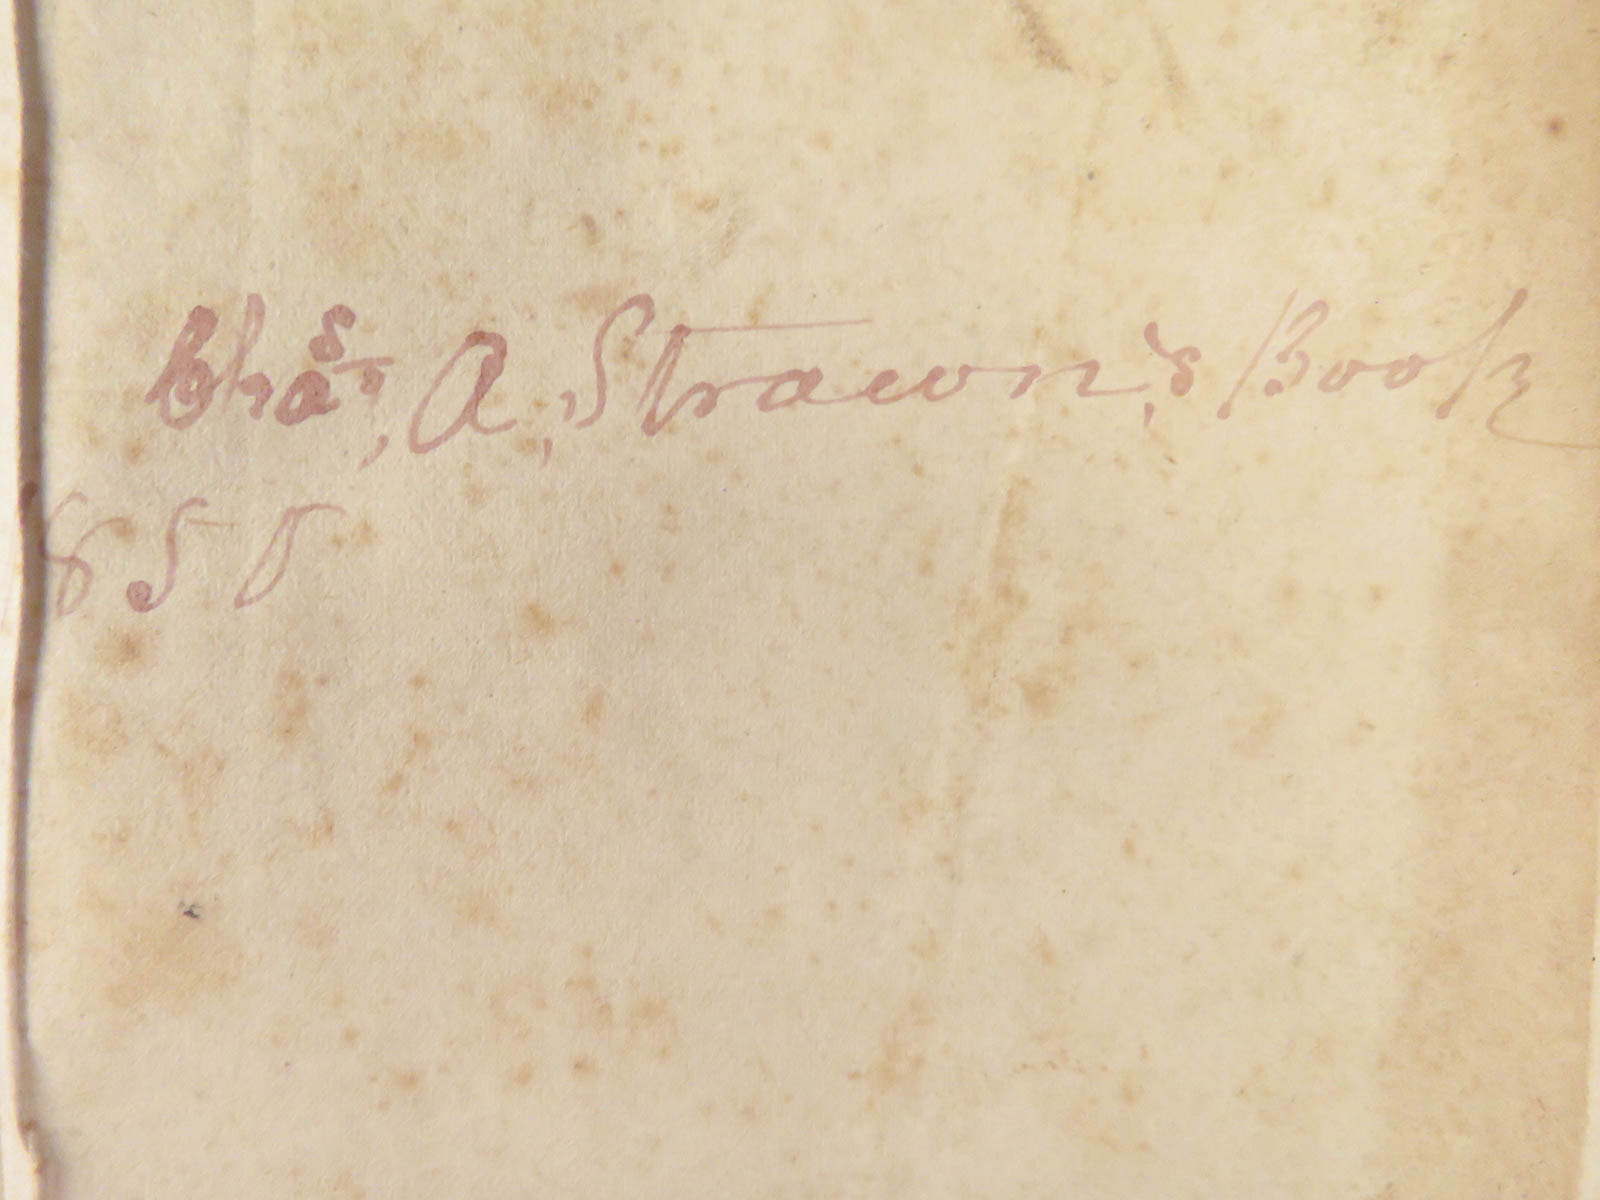 Chas, A, Strawn,s Book
850